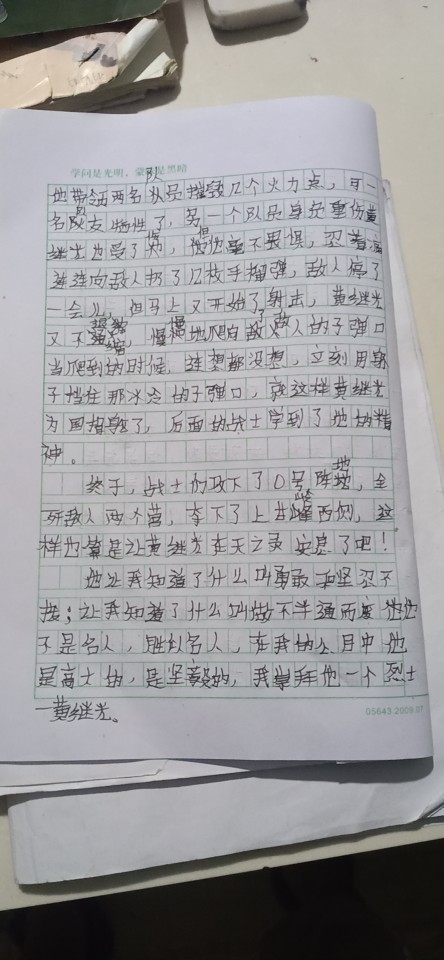 学问是光明，蒙昧是黑暗
他带领两名队员摧毁几个火力点，可一
名队友牺牲了，另一个队员身负重伤黄
继光也受了伤，但他毫不畏惧，忍着
连连向敌人扔了几枚手榴弹，敌人停了
一会儿，但马上又开始了射击，黄继光
又不退缩，慢慢地爬向敌人的子弹口
当爬到的时候，连想都没想，立刻用身
子挡在那冰冷的子弹口，就这样黄继光
为国捐躯了，后面的战士学到了他的精
神。
终于，战士们攻下了0号阵地，全
歼敌人两个营，拿下了上甘岭西侧，这
样也算是让黄继光在天之灵安息了吧！
他让我知道了什么叫勇敢和坚忍不
拔；让我知道了什么叫做不半途而废他
不是名人，胜似名人，在我的心目中他
是高大的，是坚毅的，我崇拜他一个烈士
—黄继光。
05643.2009.07